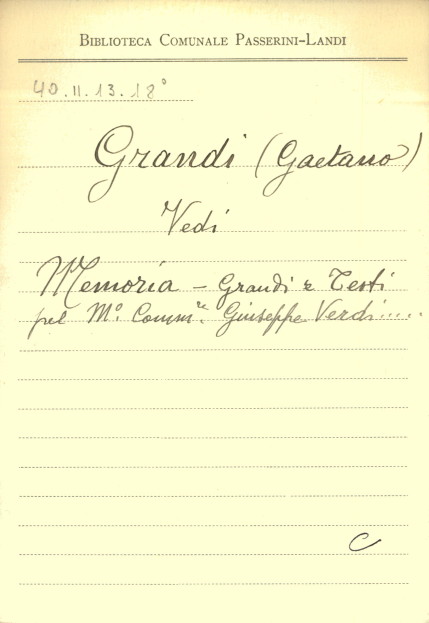 BIBLIOTECA COMUNALE PASSERINI-LANDI
40.II.13.18°
Grandi (Gaetano)
Vedi
Memoria - Grandi e Testi
pel M.° Comm.re Giuseppe Verdi.....
C